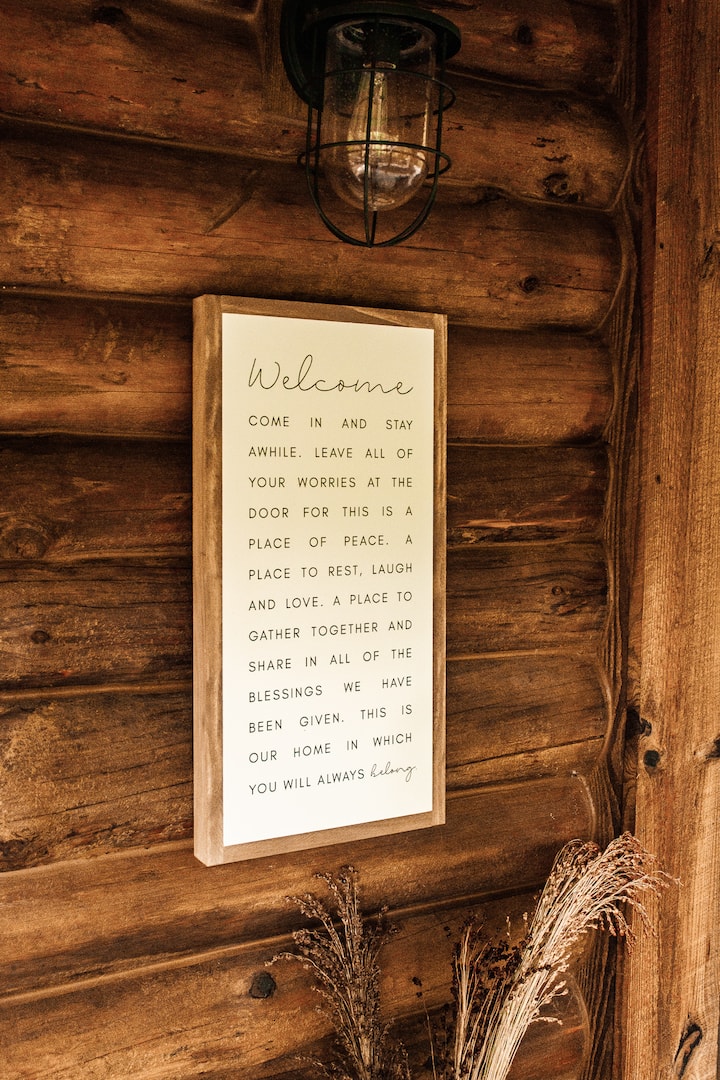 Welcome
COME IN AND STAY
AWHILE. LEAVE ALL OF
YOUR WORRIES AT THE
DOOR FOR THIS IS A
PLACE OF PEACE. A
PLACE TO REST, LAUGH
AND LOVE. A PLACE TO
GATHER TOGETHER AND
SHARE IN ALL OF THE
BLESSINGS WE HAVE
BEEN GIVEN. THIS IS
OUR HOME IN WHICH
YOU WILL ALWAYS belong.